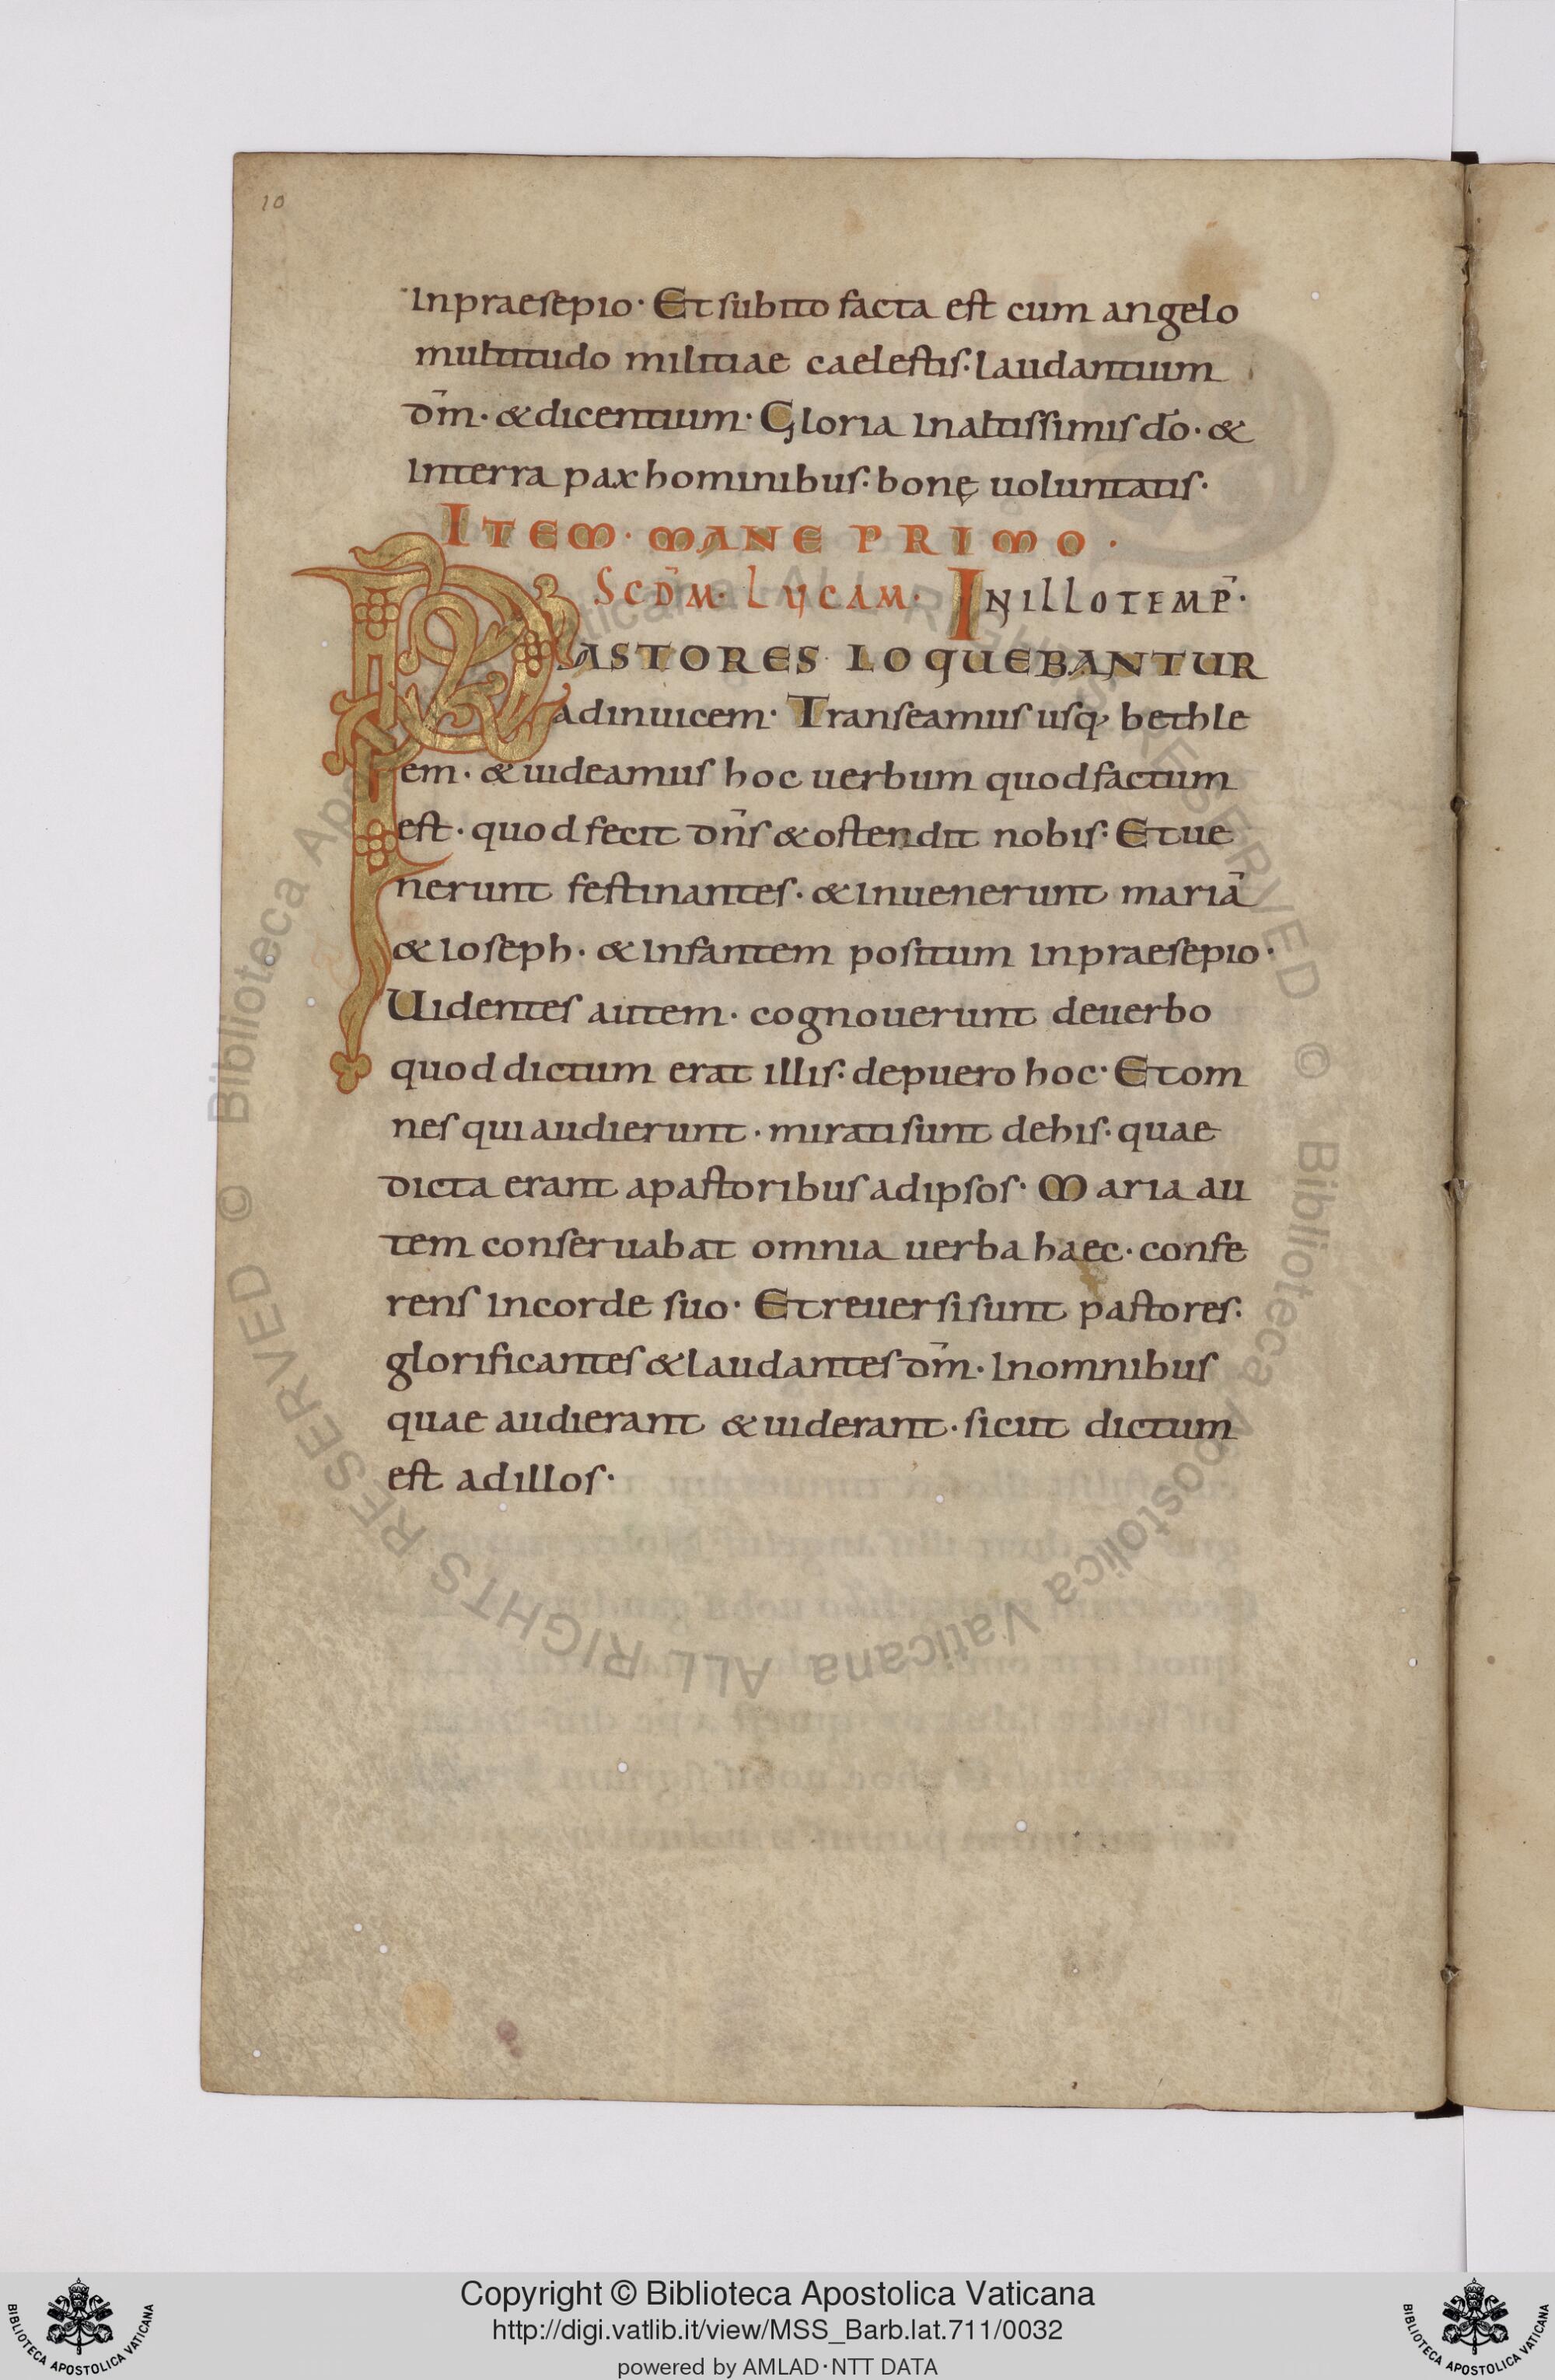 10
Inpraesepio· Et subito facta est cum angelo
multitudo militiae caelestis: laudantium
dm̄· & dicentium· Gloria In altissimis dō· &
Interra pax hominibus: bonę uoluntatis·
ITEM· MANE PRIMO·
SCDM̄· LUCAM· IN ILLO TEMP̄·
PASTORES LOQUEBANTUR
adinuicem· Transeamus usq; bethle
em· & uideamus hoc uerbum quod factum
est· quod fecit dn̄s & ostendit nobis: Et ue
nerunt festinantes· & Inuenerunt mariā
& Ioseph· & Infantem positum Inpraesepio·
Uidentes autem· cognouerunt deuerbo
quod dictum erat illis: depuero hoc· Et om
nes qui audierunt· mirati sunt dehis· quae
dicta erant a pastoribus ad ipsos· Maria au
tem conseruabat omnia uerba haec· confe
rens Incorde suo· Et reuersi sunt pastores:
glorificantes & laudantes dm̄· In omnibus
quae audierant & uiderant· sicut dictum
est ad illos·
© Biblioteca Apostolica Vaticana ALL RIGHTS RESERVED © Biblioteca Apostolica Vaticana ALL RIGHTS RESERVED
Copyright © Biblioteca Apostolica Vaticana
http://digi.vatlib.it/view/MSS_Barb.lat.711/0032
powered by AMLAD·NTT DATA
BIBLIOTECA APOSTOLICA VATICANA
BIBLIOTECA APOSTOLICA VATICANA